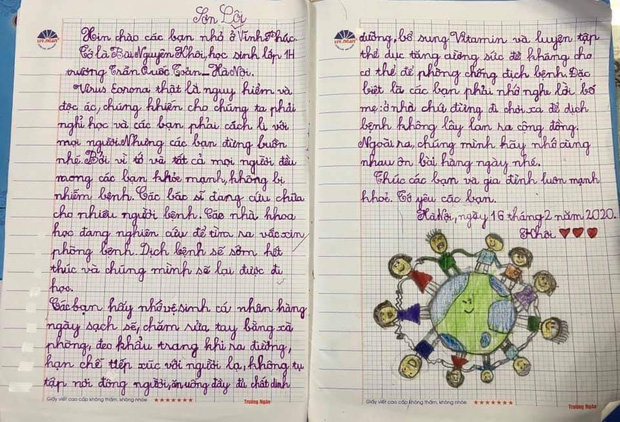 Sơn Lôi
Xin chào các bạn nhỏ ở Vĩnh Phúc.
Tớ là Bùi Nguyên Khôi, học sinh lớp 1H
trường Trần Quốc Toản_ Hà Nội.
Virus corona thật là nguy hiểm và
độc ác, chúng khiến cho chúng ta phải
nghỉ học và các bạn phải cách li với
mọi người. Nhưng các bạn đừng buồn
nhé. Bởi vì tớ và tất cả mọi người đều
mong các bạn khỏe mạnh, không bị
nhiễm bệnh. Các bác sĩ đang cứu chữa
cho nhiều người bệnh. Các nhà khoa
học đang nghiên cứu để tìm ra vắc xin
phòng bệnh. Dịch bệnh sẽ sớm kết
thúc và chúng mình sẽ lại được đi
học.
Các bạn hãy nhớ vệ sinh cá nhân hàng
ngày sạch sẽ, chăm rửa tay bằng xà
phòng, đeo khẩu trang khi ra đường,
hạn chế tiếp xúc với người lạ, không tụ
tập nơi đông người, ăn uống đầy đủ chất dinh
Giấy viết cao cấp không thấm, không nhòe
Trường Ngân
dưỡng, bổ sung Vitamin và luyện tập
thể dục tăng cường sức đề kháng cho
cơ thể để phòng chống dịch bệnh. Đặc
biệt là các bạn phải nhớ nghe lời bố
mẹ: ở nhà chứ đừng đi chơi xa để dịch
bệnh không lây lan ra cộng đồng.
Ngoài ra, chúng mình hãy nhớ cùng
nhau ôn bài hàng ngày nhé.
Chúc các bạn và gia đình luôn mạnh
khoẻ. Tớ yêu các bạn.
Hà Nội, ngày 16 tháng 2 năm 2020.
Khôi
Giấy viết cao cấp không thấm, không nhòe
Trường Ngân